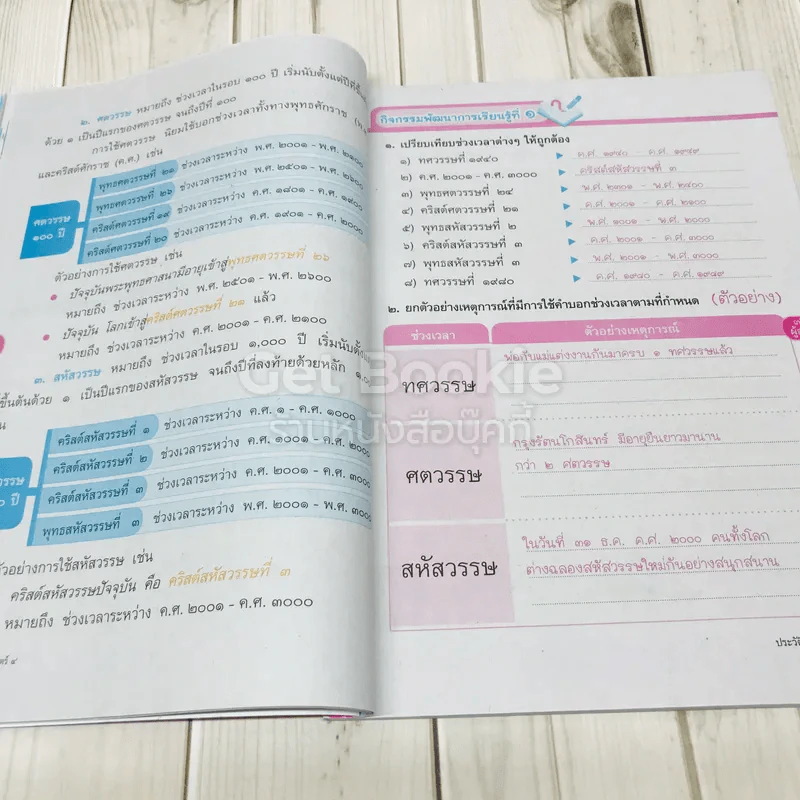 ๒. ศตวรรษ หมายถึง ช่วงเวลาในรอบ ๑๐๐ ปี เริ่มนับตั้งแต่ปีที่ขึ้น
ด้วย ๑ เป็นปีแรกของศตวรรษ จนถึงปีที่ ๑๐๐
การใช้ศตวรรษ นิยมใช้บอกช่วงเวลาทั้งทางพุทธศักราช (พ.
และคริสต์ศักราช (ค.ศ.) เช่น
ศตวรรษ
๑๐๐ ปี
พุทธศตวรรษที่ ๒๑ ช่วงเวลาระหว่าง พ.ศ. ๒๐๐๑ - พ.ศ. ๒๑๐๐
พุทธศตวรรษที่ ๒๖ ช่วงเวลาระหว่าง พ.ศ. ๒๕๐๑ - พ.ศ. ๒๖๐๐
คริสต์ศตวรรษที่ ๑๙ ช่วงเวลาระหว่าง ค.ศ. ๑๘๐๑ - ค.ศ. ๑๙๐๐
คริสต์ศตวรรษที่ ๒๐ ช่วงเวลาระหว่าง ค.ศ. ๑๙๐๑ - ค.ศ. ๒๐๐๐
ตัวอย่างการใช้ศตวรรษ เช่น
• ปัจจุบันพระพุทธศาสนามีอายุเข้าสู่พุทธศตวรรษที่ ๒๖
หมายถึง ช่วงเวลาระหว่าง พ.ศ. ๒๕๐๑ - พ.ศ. ๒๖๐๐
• ปัจจุบัน โลกเข้าสู่คริสต์ศตวรรษที่ ๒๑ แล้ว
หมายถึง ช่วงเวลาระหว่าง ค.ศ. ๒๐๐๑ - ค.ศ. ๒๑๐๐
๓. สหัสวรรษ หมายถึง ช่วงเวลาในรอบ ๑,๐๐๐ ปี เริ่มนับตั้งแต่
ขึ้นต้นด้วย ๑ เป็นปีแรกของสหัสวรรษ จนถึงปีที่ลงท้ายด้วยหลัก ๑,๐
วรรษ
๐ ปี
คริสต์สหัสวรรษที่ ๑ ช่วงเวลาระหว่าง ค.ศ. ๑ - ค.ศ. ๑๐๐๐
คริสต์สหัสวรรษที่ ๒ ช่วงเวลาระหว่าง ค.ศ. ๑๐๐๑ - ค.ศ. ๒๐๐๐
คริสต์สหัสวรรษที่ ๓ ช่วงเวลาระหว่าง ค.ศ. ๒๐๐๑ - ค.ศ. ๓๐๐๐
พุทธสหัสวรรษที่ ๓ ช่วงเวลาระหว่าง พ.ศ. ๒๐๐๑ - พ.ศ. ๓๐๐๐
ตัวอย่างการใช้สหัสวรรษ เช่น
คริสต์สหัสวรรษปัจจุบัน คือ คริสต์สหัสวรรษที่ ๓
หมายถึง ช่วงเวลาระหว่าง ค.ศ. ๒๐๐๑ - ค.ศ. ๓๐๐๐
กิจกรรมพัฒนาการเรียนรู้ที่ ๑
๑. เปรียบเทียบช่วงเวลาต่างๆ ให้ถูกต้อง
๑) ทศวรรษที่ ๑๙๔๐ ค.ศ. ๑๙๔๐ - ค.ศ. ๑๙๔๙
๒) ค.ศ. ๒๐๐๑ - ค.ศ. ๓๐๐๐ คริสต์สหัสวรรษที่ ๓
๓) พุทธศตวรรษที่ ๒๔ พ.ศ. ๒๓๐๑ - พ.ศ. ๒๔๐๐
๔) คริสต์ศตวรรษที่ ๒๑ ค.ศ. ๒๐๐๑ - ค.ศ. ๒๑๐๐
๕) พุทธสหัสวรรษที่ ๒ พ.ศ. ๑๐๐๑ - พ.ศ. ๒๐๐๐
๖) คริสต์สหัสวรรษที่ ๓ ค.ศ. ๒๐๐๑ - ค.ศ. ๓๐๐๐
๗) พุทธสหัสวรรษที่ ๓ พ.ศ. ๒๐๐๑ - พ.ศ. ๓๐๐๐
๘) ทศวรรษที่ ๑๙๘๐ ค.ศ. ๑๙๘๐ - ค.ศ. ๑๙๘๙
๒. ยกตัวอย่างเหตุการณ์ที่มีการใช้คำบอกช่วงเวลาตามที่กำหนด (ตัวอย่าง)
ช่วงเวลา ตัวอย่างเหตุการณ์
ทศวรรษ
พ่อกับแม่แต่งงานกันมาครบ ๑ ทศวรรษแล้ว
ศตวรรษ
กรุงรัตนโกสินทร์ มีอายุยืนยาวมานาน
กว่า ๒ ศตวรรษ
สหัสวรรษ
ในวันที่ ๓๑ ธ.ค. ค.ศ. ๒๐๐๐ คนทั้งโลก
ต่างฉลองสหัสวรรษใหม่กันอย่างสนุกสนาน
Get Bookie
รวมหนังสือบุ๊คกี้